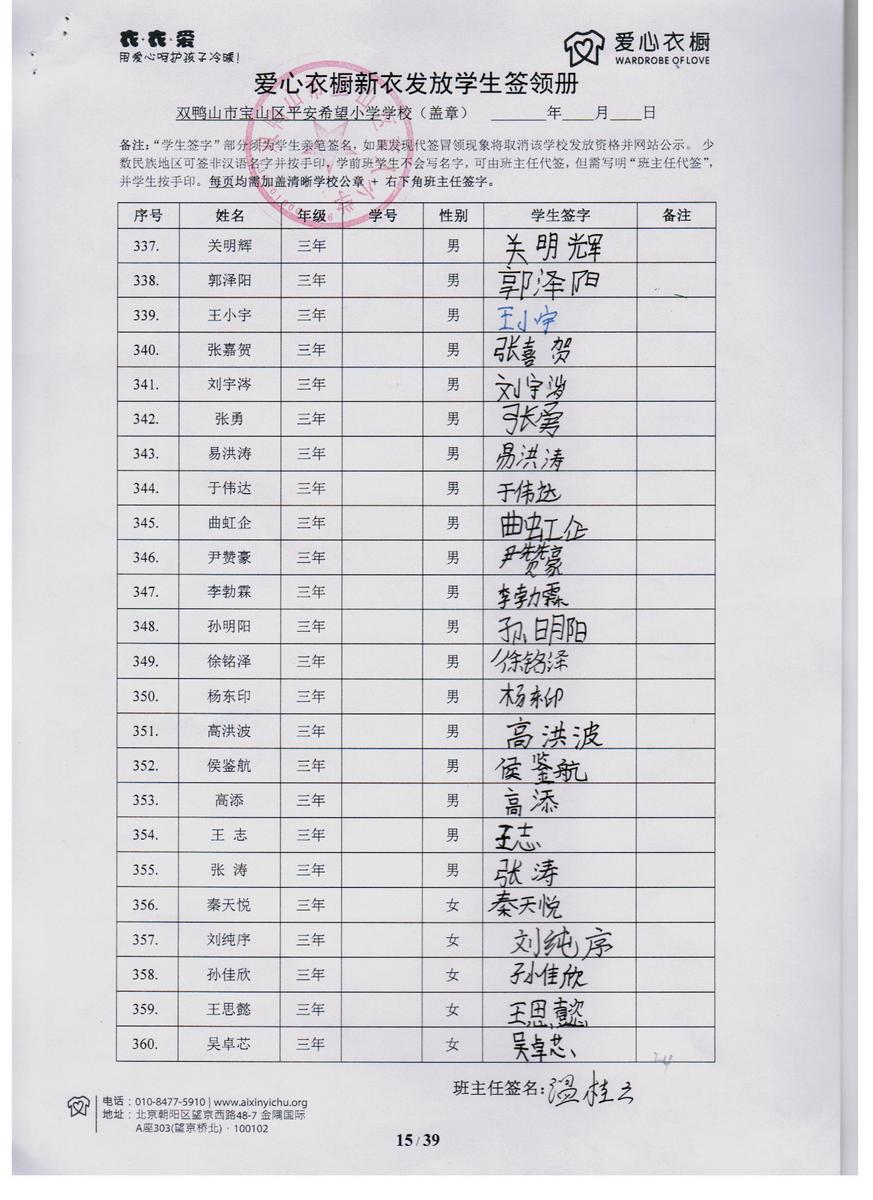 衣·衣·爱
用爱心呵护孩子冷暖!
爱心衣橱
WARDROBE OF LOVE
爱心衣橱新衣发放学生签领册
双鸭山市宝山区平安希望小学学校(盖章) ______年____月____日
备注:“学生签字”部分须为学生亲笔签名,如果发现代签冒领现象将取消该学校发放资格并网站公示。 少
数民族地区可签非汉语名字并按手印,学前班学生不会写名字,可由班主任代签,但需写明“班主任代签”,
并学生按手印。每页均需加盖清晰学校公章 + 右下角班主任签字。
序号 姓名 年级 学号 性别 学生签字 备注
337. 关明辉 三年 男 关明辉
338. 郭泽阳 三年 男 郭泽阳
339. 王小宇 三年 男 王小宇
340. 张嘉贺 三年 男 张喜贺
341. 刘宇涔 三年 男 刘宇涔
342. 张勇 三年 男 张勇
343. 易洪涛 三年 男 易洪涛
344. 于伟达 三年 男 于伟达
345. 曲虹企 三年 男 曲虹企
346. 尹赞豪 三年 男 尹赞豪
347. 李勃霖 三年 男 李勃霖
348. 孙明阳 三年 男 孙明阳
349. 徐铭泽 三年 男 徐铭泽
350. 杨东印 三年 男 杨东印
351. 高洪波 三年 男 高洪波
352. 侯鉴航 三年 男 侯鉴航
353. 高添 三年 男 高添
354. 王 志 三年 男 王志
355. 张 涛 三年 男 张涛
356. 秦天悦 三年 女 秦天悦
357. 刘纯序 三年 女 刘纯序
358. 孙佳欣 三年 女 孙佳欣
359. 王思懿 三年 女 王思懿
360. 吴卓芯 三年 女 吴卓芯
班主任签名:温桂云
电话:010-8477-5910 | www.aixinyichu.org
地址:北京朝阳区望京西路48-7 金隅国际
A座303(望京桥北)·100102
15 / 39